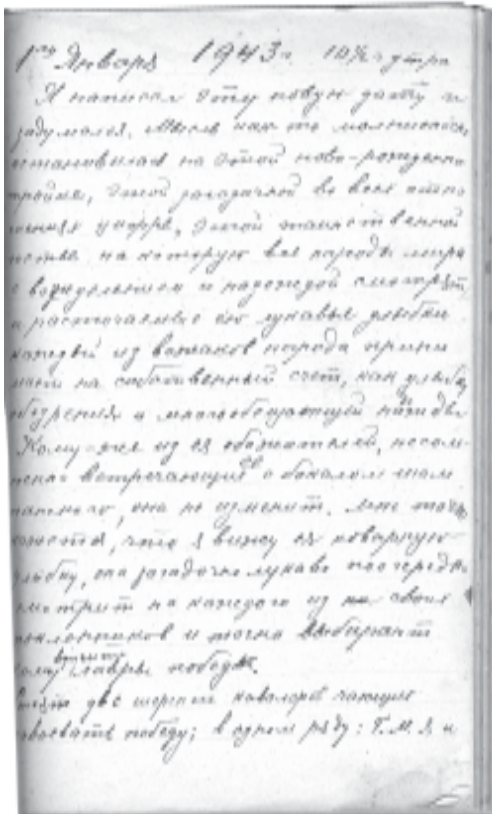 1го Января 1943 г. 10½ ч утра
Я написал эту новую дату и
задумался. Мысль как то
остановилась на этой ново-рожденно
тройке, этой загадочной во всех отно
шениях цифре, этой таинственной
на которую все народы мира
с и надеждой смотрят,
и расточаемые ею лукавые улыбки
каждый из вожаков народа прини
мает на собственный счет, как улыбку
и многообещающей надежды
Кому-же из ея обожателей, несом-
ненно встречающих ея с бокалом шам
панского, она не изменит. Мне точно
кажется, что я вижу ея коварную
улыбку, она загадочно лукаво поочередно
смотрит на каждого из своих
поклонников и точно выбирает
кому вручить лавры победы.
две шеренги кавалеров чающие
победу; в одном ряду: Г. М. Я. и